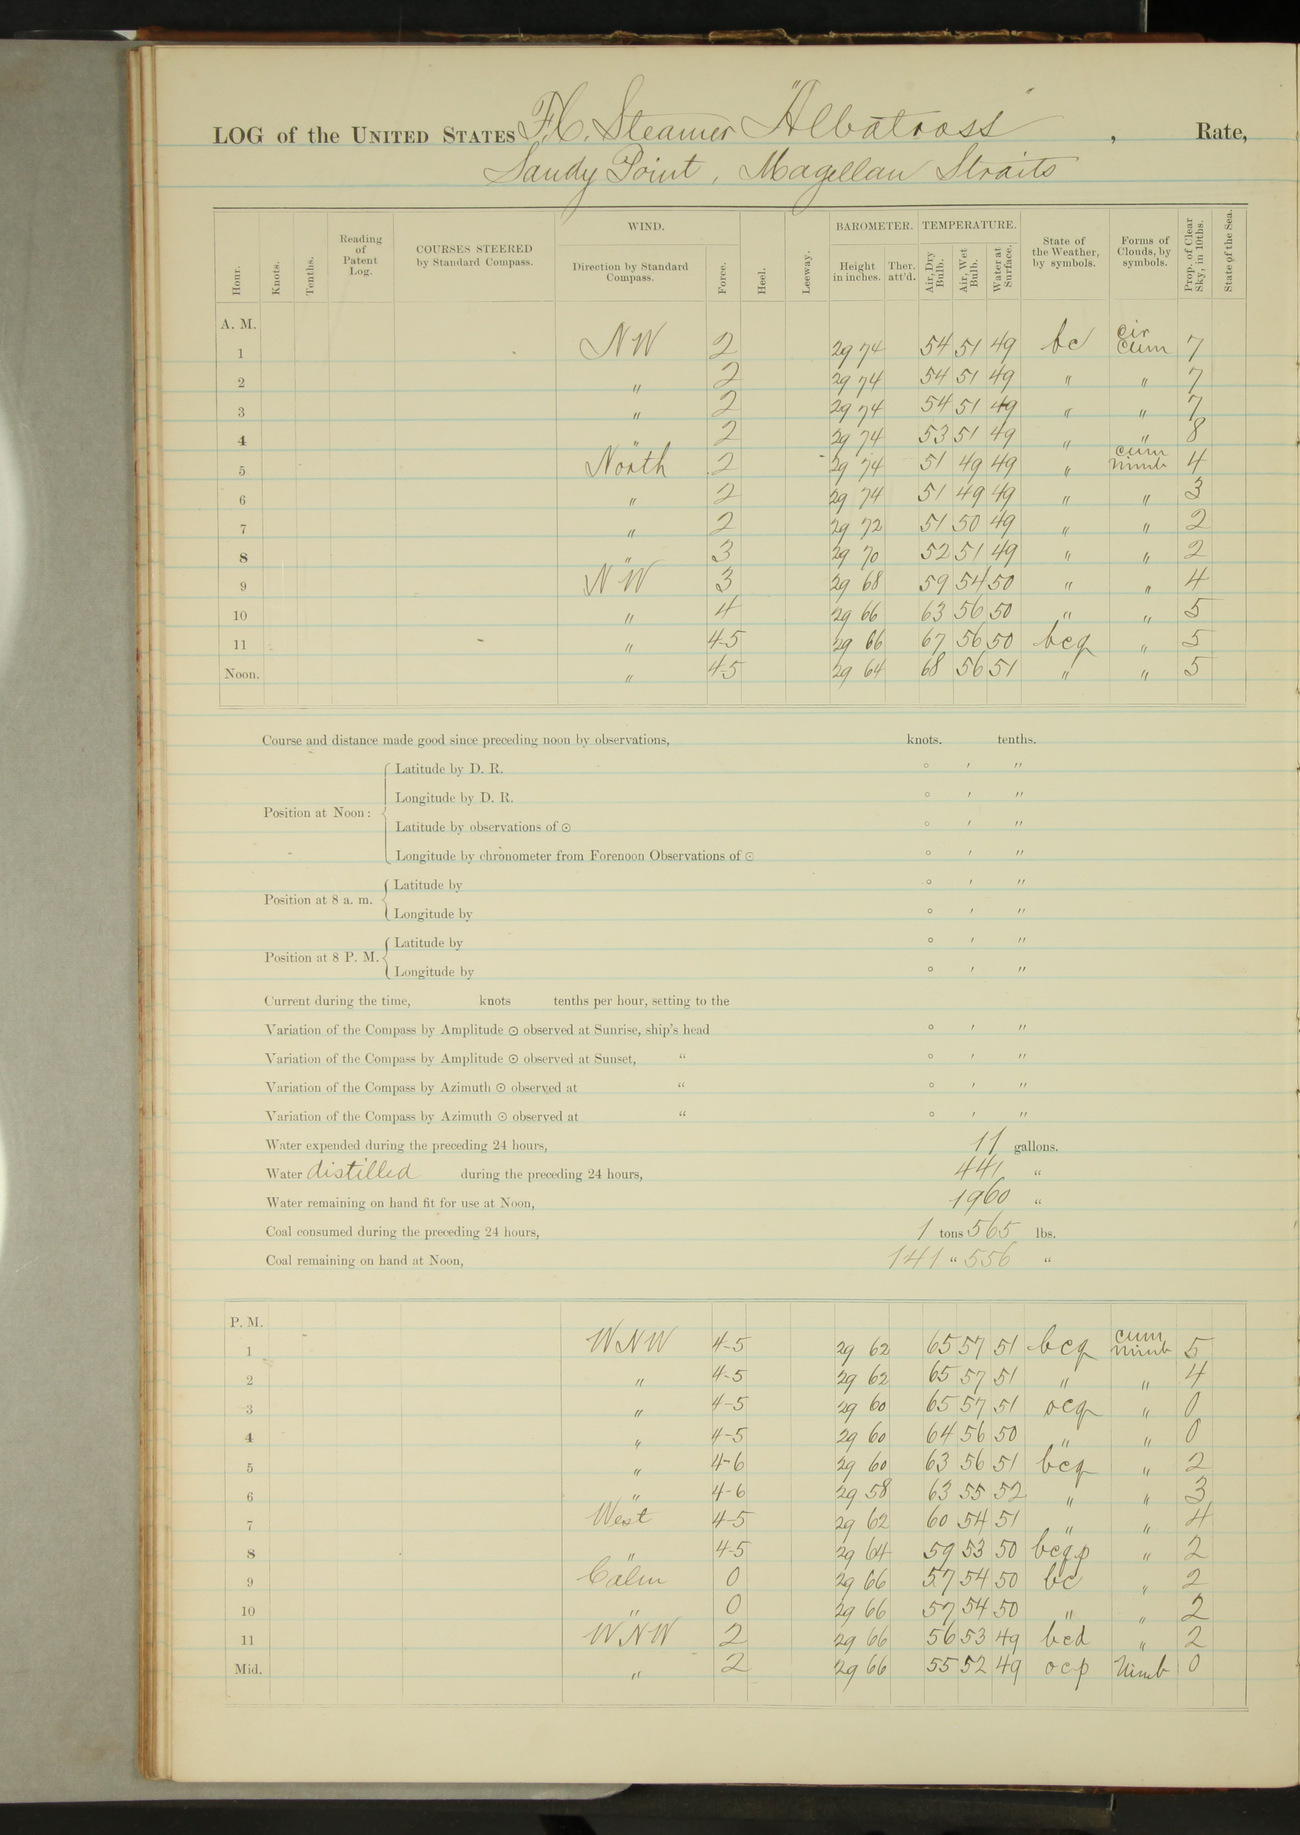 LOG of the UNITED STATES F.C. Steamer "Albatross", Rate,
Sandy Point, Magellan Straits
Hour. Knots. Tenths. Reading of Patent Log. COURSES STEERED by Standard Compass. WIND. Direction by Standard Compass. Force. Heel. Leeway. BAROMETER. Height in inches. Ther. att'd. TEMPERATURE. Air, Dry Bulb. Air, Wet Bulb. Water at Surface. State of the Weather, by symbols. Forms of Clouds, by symbols. Prop. of Clear Sky, in 10ths. State of the Sea.
A. M.
1 NW 2 29 74 54 51 49 bc cir cum 7
2 " 2 29 74 54 51 49 " " 7
3 " 2 29 74 54 51 49 " " 7
4 " 2 29 74 53 51 49 " " 8
5 North 2 29 74 51 49 49 " cum nimb 4
6 " 2 29 74 51 49 49 " " 3
7 " 2 29 72 51 50 49 " " 2
8 " 3 29 70 52 51 49 " " 2
9 NW 3 29 68 59 54 50 " " 4
10 " 4 29 66 63 56 50 " " 5
11 " 4-5 29 66 67 56 50 bcq " 5
Noon. " 4-5 29 64 68 56 51 " " 5
Course and distance made good since preceding noon by observations, knots. tenths.
Position at Noon:
Latitude by D. R. ° ′ ″
Longitude by D. R. ° ′ ″
Latitude by observations of ☉ ° ′ ″
Longitude by chronometer from Forenoon Observations of ☉ ° ′ ″
Position at 8 a. m.
Latitude by ° ′ ″
Longitude by ° ′ ″
Position at 8 P. M.
Latitude by ° ′ ″
Longitude by ° ′ ″
Current during the time, knots tenths per hour, setting to the
Variation of the Compass by Amplitude ☉ observed at Sunrise, ship's head ° ′ ″
Variation of the Compass by Amplitude ☉ observed at Sunset, " ° ′ ″
Variation of the Compass by Azimuth ☉ observed at " ° ′ ″
Variation of the Compass by Azimuth ☉ observed at " ° ′ ″
Water expended during the preceding 24 hours, 11 gallons.
Water distilled during the preceding 24 hours, 441 "
Water remaining on hand fit for use at Noon, 1960 "
Coal consumed during the preceding 24 hours, 1 tons 565 lbs.
Coal remaining on hand at Noon, 141 " 556 "
P. M.
1 WNW 4-5 29 62 65 57 51 bcq cum nimb 5
2 " 4-5 29 62 65 57 51 " " 4
3 " 4-5 29 60 65 57 51 ocq " 0
4 " 4-5 29 60 64 56 50 " " 0
5 " 4-6 29 60 63 56 51 bcq " 2
6 " 4-6 29 58 63 55 52 " " 3
7 West 4-5 29 62 60 54 51 " " 4
8 " 4-5 29 64 59 53 50 bcqp " 2
9 Calm 0 29 66 57 54 50 bc " 2
10 " 0 29 66 57 54 50 " " 2
11 WNW 2 29 66 56 53 49 bcd " 2
Mid. " 2 29 66 55 52 49 ocp Nimb 0